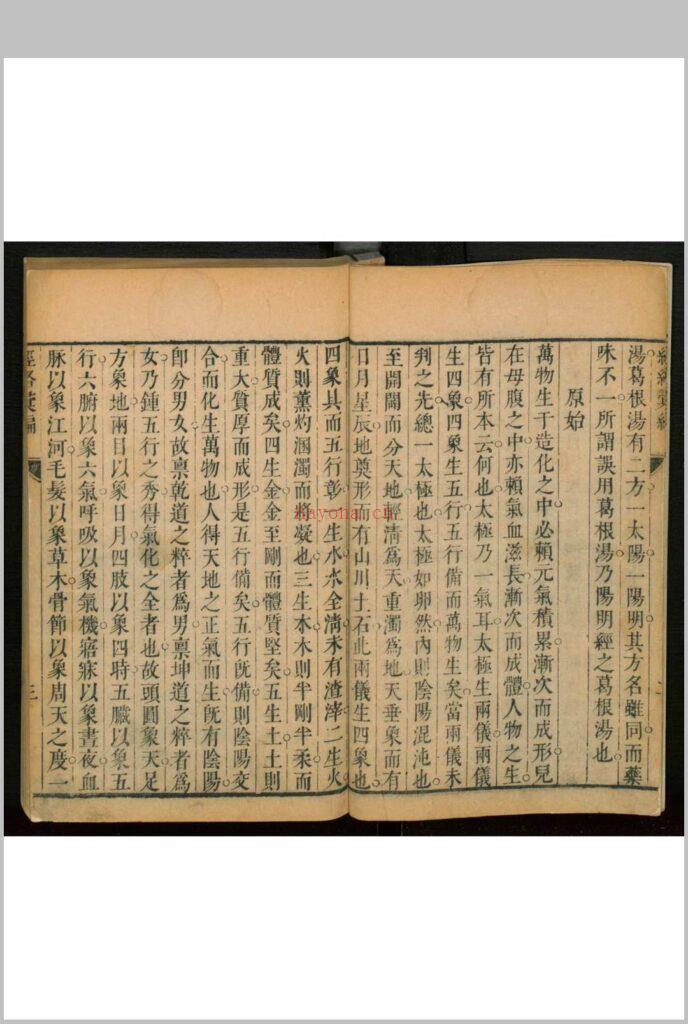 湯葛根湯有二方一太陽一陽明其方名雖同而藥
味不一所謂誤用葛根湯乃陽明經之葛根湯也
原始
萬物生于造化之中必賴元氣積累漸次而成形兒
在母腹之中亦賴氣血滋長漸次而成體人物之生
皆有所本云何也太極乃一氣耳太極生兩儀兩儀
生四象四象生五行五行備而萬物生矣當兩儀未
判之先總一太極也太極如卵然內則陰陽混沌也
至開闢而分天地輕清爲天重濁爲地天垂象而有
日月星辰地奠形而有山川土石此兩儀生四象也
四象具而五行彰一生水水全淸未有渣滓二生火
火則薰灼溷濁而將凝也三生木木則半剛半柔而
體質成矣四生金金至剛而體質堅矣五生土土則
重大質厚而成形是五行備矣五行旣備則陰陽交
合而化生萬物也人得天地之正氣而生旣有陰陽
卽分男女故禀乾道之粹者爲男禀坤道之粹者爲
女乃鍾五行之秀得氣化之全者也故頭圓象天足
方象地兩目以象日月四肢以象四時五臟以象五
行六腑以象六氣呼吸以象氣機寤寐以象晝夜血
脉以象江河毛髮以象草木骨節以象周天之度一
經絡彙編
三
kayoha.cn